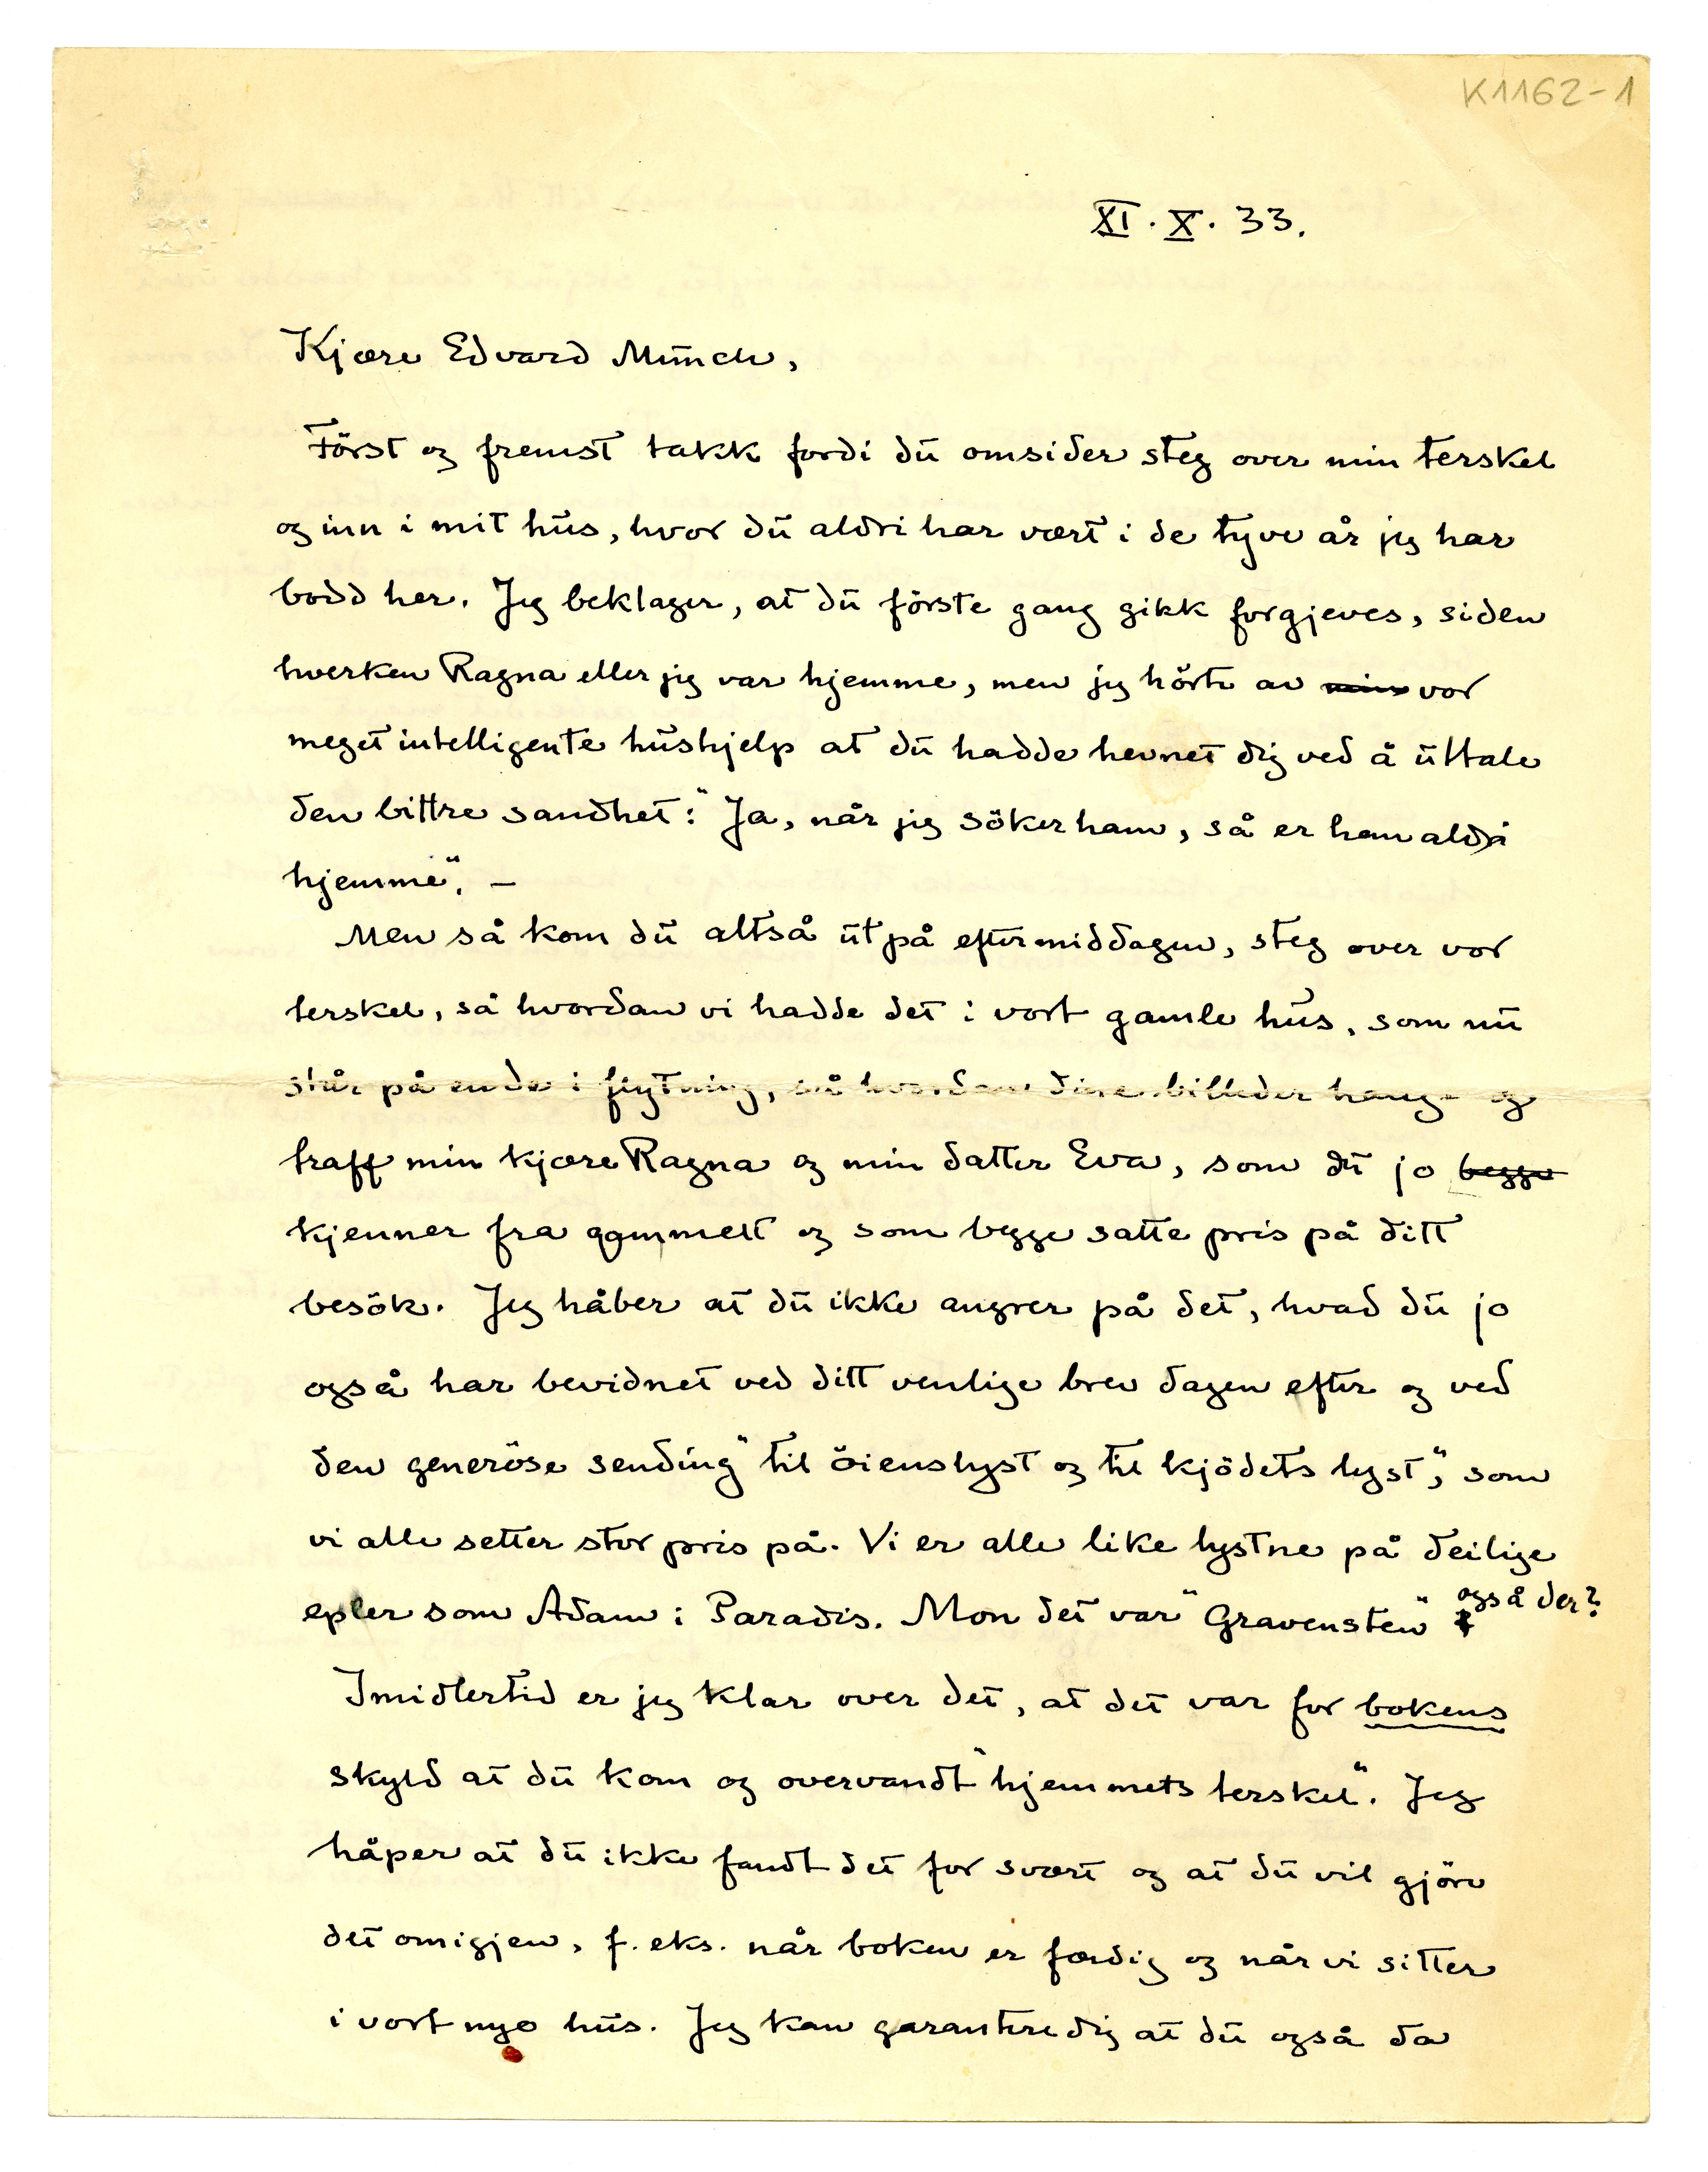 K1162-1
XI. X. 33.
Kjære Edvard Münch,
Först og fremst takk fordi dū omsider steg over min terskel
og inn i mit hūs, hvor dū aldri har vært i de tyve år jeg har
bodd her. Jeg beklager, at dū förste gang gikk forgjeves, siden
hverken Ragna eller jeg var hjemme, men jeg hörte av min vor
meget intelligente hūshjelp at dū hadde hevnet dig ved å ūttale
den bittre sandhet: "Ja, når jeg söker ham, så er han aldri
hjemme". –
Men så kom dū altså ūt på eftermiddagen, steg over vor
terskel, så hvordan vi hadde det i vort gamle hūs, som nū
står på ende i flytning, så hvordan dine billeder hang og
traff min kjære Ragna og min datter Eva, som dū jo begge
kjenner fra gammelt og som begge satte pris på ditt
besök. Jeg håber at dū ikke angrer på det, hvad dū jo
også har bevidnet ved ditt venlige brev dagen efter og ved
den generöse sending "til öienslyst og til kjödets lyst", som
vi alle setter stor pris på. Vi er alle like lystne på deilige
epler som Adam i Paradis. Mon det var "Gravensten" også der?
Imidlertid er jeg klar over det, at det var for bokens
skyld at dū kom og overvandt "hjemmets terskel". Jeg
håper at dū ikke fandt det for svært og at dū vil gjöre
det omigjen, f. eks. når boken er færdig og når vi sitter
i vort nye hūs. Jeg kan garantere dig at dū også da